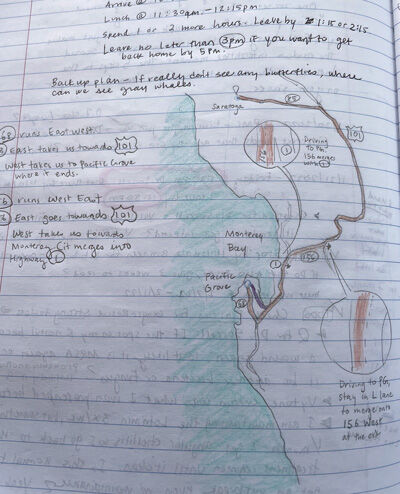 Arrive @ 10
Lunch @ 11:30am - 12:15pm
Spend 1 or 2 more hours. Leave by 1:15 or 2:15
Leave no later than 3pm if you want to get
back home by 5pm.
Back up plan - If really don't see any butterflies, where
can we see gray whales.
Saratoga
85
101
68 runs East West.
East takes us towards 101
West takes us to Pacific Grove
where it ends.
runs West East
East goes towards 101
West takes us towards
Monterey (it merges into
Highway 1
156
1
Driving
to PG,
156 merges
1
Monterey
Bay
1
156
Pacific
Grove
68
Driving to PG,
stay in L lane
to merge onto
156 West
at the exit